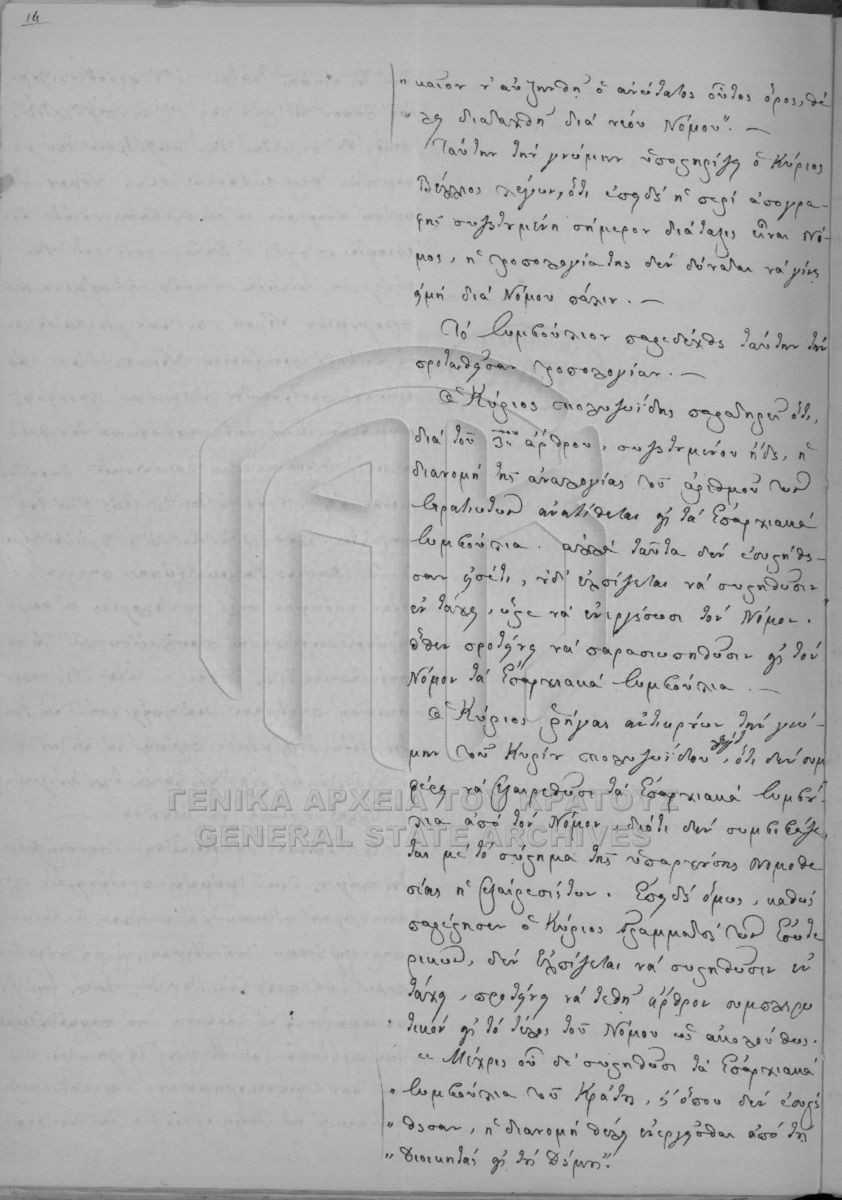 14
„ καῖον ν' αὐξηνθῇ ὁ ἀνώτατος οὗτος ὅρος, θέ
„ λει διαταχθῆ διὰ νέου Νόμου". —
Ταύτην τὴν γνώμην ὑποστηρίζει ὁ Κύριος
λέγων, ὅτι ἐπειδὴ ἡ περὶ ἀπογρα-
φῆς συζητημένη σήμερον διάταξις εἶναι Νό-
μος, ἡ τροπολογία της δὲν δύναται νὰ γίνῃ
εἰμὴ διὰ Νόμου πάλιν. —
Τὸ Συμβούλιον παρεδέχθη ταύτην τὴν
προταθεῖσαν τροπολογίαν. —
Ὁ Κύριος Πολυζωΐδης παρατηρεῖ ὅτι,
διὰ τοῦ 3ου ἄρθρου, συζητημένου ἤδη, ἡ
διανομὴ τῆς ἀναλογίας τοῦ ἀριθμοῦ τῶν
Στρατιωτῶν ἀνατίθεται εἰς τὰ Ἐπαρχιακὰ
Συμβούλια. ἀλλὰ ταῦτα δὲν ἐσυστήθη-
σαν εἰσέτι, οὐδ' ἐλπίζεται νὰ συστηθῶσιν
ἐν τάχει, ὥστε νὰ ἐνεργήσωσι τὸν Νόμον.
ὅθεν προτείνει νὰ παρασιωπηθῶσιν εἰς τὸν
Νόμον τὰ Ἐπαρχιακὰ Συμβούλια. —
Ὁ Κύριος Ῥήγας ἀντικρούων τὴν γνώ-
μην τοῦ Κυρίου Πολυζωΐδου λέγει, ὅτι δὲν συμ
φέρει νὰ ἐξαιρεθῶσι τὰ Ἐπαρχιακὰ Συμβού-
λια ἀπὸ τὸν Νόμον, διότι δὲν συμβιβάζε
ται μὲ τὸ σύστημα τῆς ὑπαρχούσης Νομοθε
σίας ἡ ἐξαίρεσίς των. Ἐπειδὴ ὅμως, καθὼς
παρέστησεν ὁ Κύριος Γραμματεὺς τῶν Ἐσωτε
ρικῶν, δὲν ἐλπίζεται νὰ συστηθῶσιν ἐν
τάχει, προτείνει νὰ τεθῇ ἄρθρον συμπληρω
τικὸν εἰς τὸ τέλος τοῦ Νόμου ὡς ἀκολούθως.
« Μέχρις οὗ δὲ συστηθῶσι τὰ Ἐπαρχιακὰ
„ Συμβούλια τοῦ Κράτους, ὅπου δὲν ἐσυστή
„ θησαν, ἡ διανομὴ θέλει ἐνεργεῖσθαι ἀπὸ τοὺς
„ Διοικητὰς εἰς τοὺς Δήμους".
ΓΕΝΙΚΑ ΑΡΧΕΙΑ ΤΟΥ ΚΡΑΤΟΥΣ
GENERAL STATE ARCHIVES